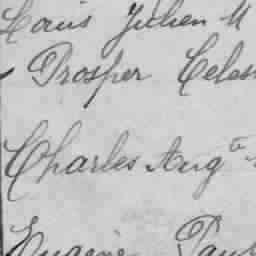 Louis Julien M
Prosper Celes
Charles Augte
Eugène Pau